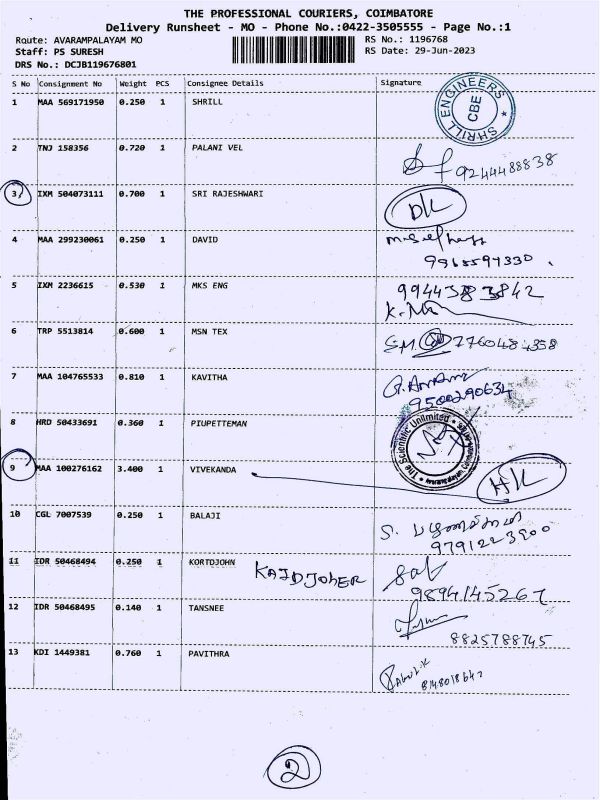 THE PROFESSIONAL COURIERS, COIMBATORE
Delivery Runsheet - MO - Phone No.:0422-3505555 - Page No.:1
Route: AVARAMPALAYAM MO RS No.: 1196768
Staff: PS SURESH RS Date: 29-Jun-2023
DRS No.: DCJB119676801
S No Consignment No Weight PCS Consignee Details Signature
1 MAA 569171950 0.250 1 SHRILL SHRILL ENGINEERS CBE
2 TNJ 158356 0.720 1 PALANI VEL
9244488838
3 IXM 504073111 0.700 1 SRI RAJESHWARI
4 MAA 299230061 0.250 1 DAVID
5 IXM 2236615 0.530 1 MKS ENG
6 TRP 5513814 0.600 1 MSN TEX S.M. 7760484358
7 MAA 104765533 0.810 1 KAVITHA
9500290634
8 HRD 50433691 0.360 1 PIUPETTEMAN The Scientific Unlimited
9 MAA 100276162 3.400 1 VIVEKANDA
10 CGL 7007539 0.250 1 BALAJI
9791223900
11 IDR 50468494 0.250 1 KORTDJOHN
9894145267
12 IDR 50468495 0.140 1 TANSNEE
8825788745
13 KDI 1449381 0.760 1 PAVITHRA
2